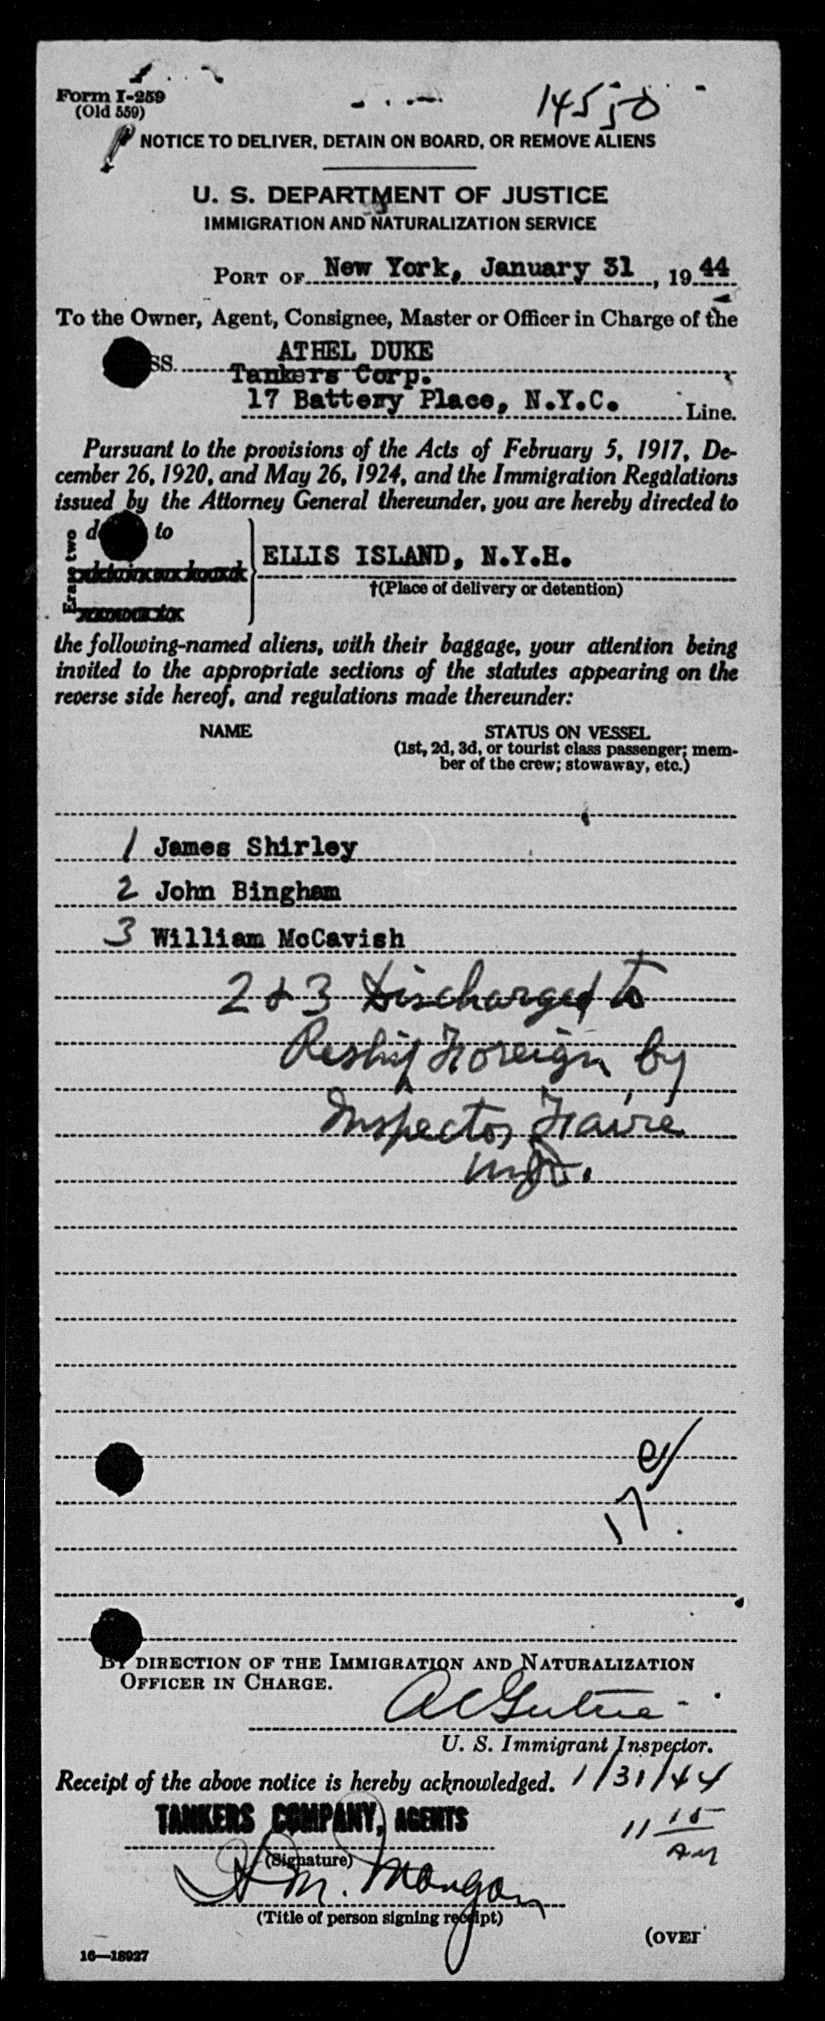 Form I-259
(Old 559)
14550
NOTICE TO DELIVER, DETAIN ON BOARD, OR REMOVE ALIENS
U. S. DEPARTMENT OF JUSTICE
IMMIGRATION AND NATURALIZATION SERVICE
PORT OF New York, January 31, 1944
To the Owner, Agent, Consignee, Master or Officer in Charge of the
SS. ATHEL DUKE
Tankers Corp.
17 Battery Place, N.Y.C. Line.
Pursuant to the provisions of the Acts of February 5, 1917, De-
cember 26, 1920, and May 26, 1924, and the Immigration Regulations
issued by the Attorney General thereunder, you are hereby directed to
to
Erase two
ELLIS ISLAND, N.Y.H.
†(Place of delivery or detention)
the following-named aliens, with their baggage, your attention being
invited to the appropriate sections of the statutes appearing on the
reverse side hereof, and regulations made thereunder:
NAME STATUS ON VESSEL
(1st, 2d, 3d, or tourist class passenger; mem-
ber of the crew; stowaway, etc.)
1 James Shirley
2 John Bingham
3 William McCavish
2 & 3 Discharged to
Reship Foreign by
Inspector
17
BY DIRECTION OF THE IMMIGRATION AND NATURALIZATION
OFFICER IN CHARGE.
U. S. Immigrant Inspector.
Receipt of the above notice is hereby acknowledged. 1/31/44
TANKERS COMPANY, AGENTS
11 15
AM
(Signature)
H. M. Mangan
(Title of person signing receipt)
(OVER
16—18927